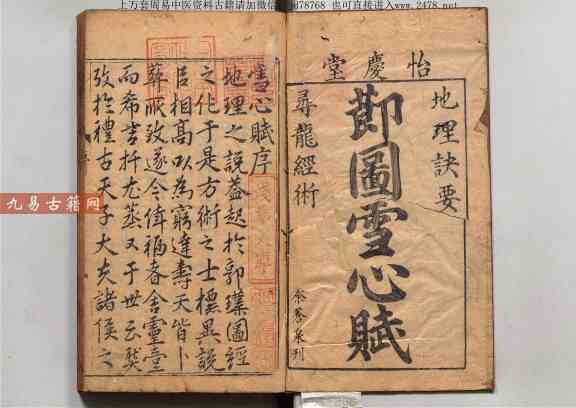 上万套周易中医资料古籍请加微信 78768 也可直接进入www.2478.net
怡慶堂
地理訣要
節圖雪心賦
尋龍經術
雪心賦序
地理之說蓋起於郭璞圖經
之化于是方術之士標異說
臣相高以為窮達壽夭皆卜
葬所致遂令侍福者舍靈臺
而希吉扦尤蒸又于世云
攷於禮古天子大夫諸侯之
九易古籍网